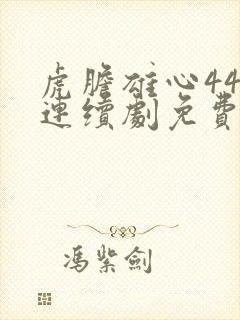 虎膽雄心44
連續劇免費
馮紫劍